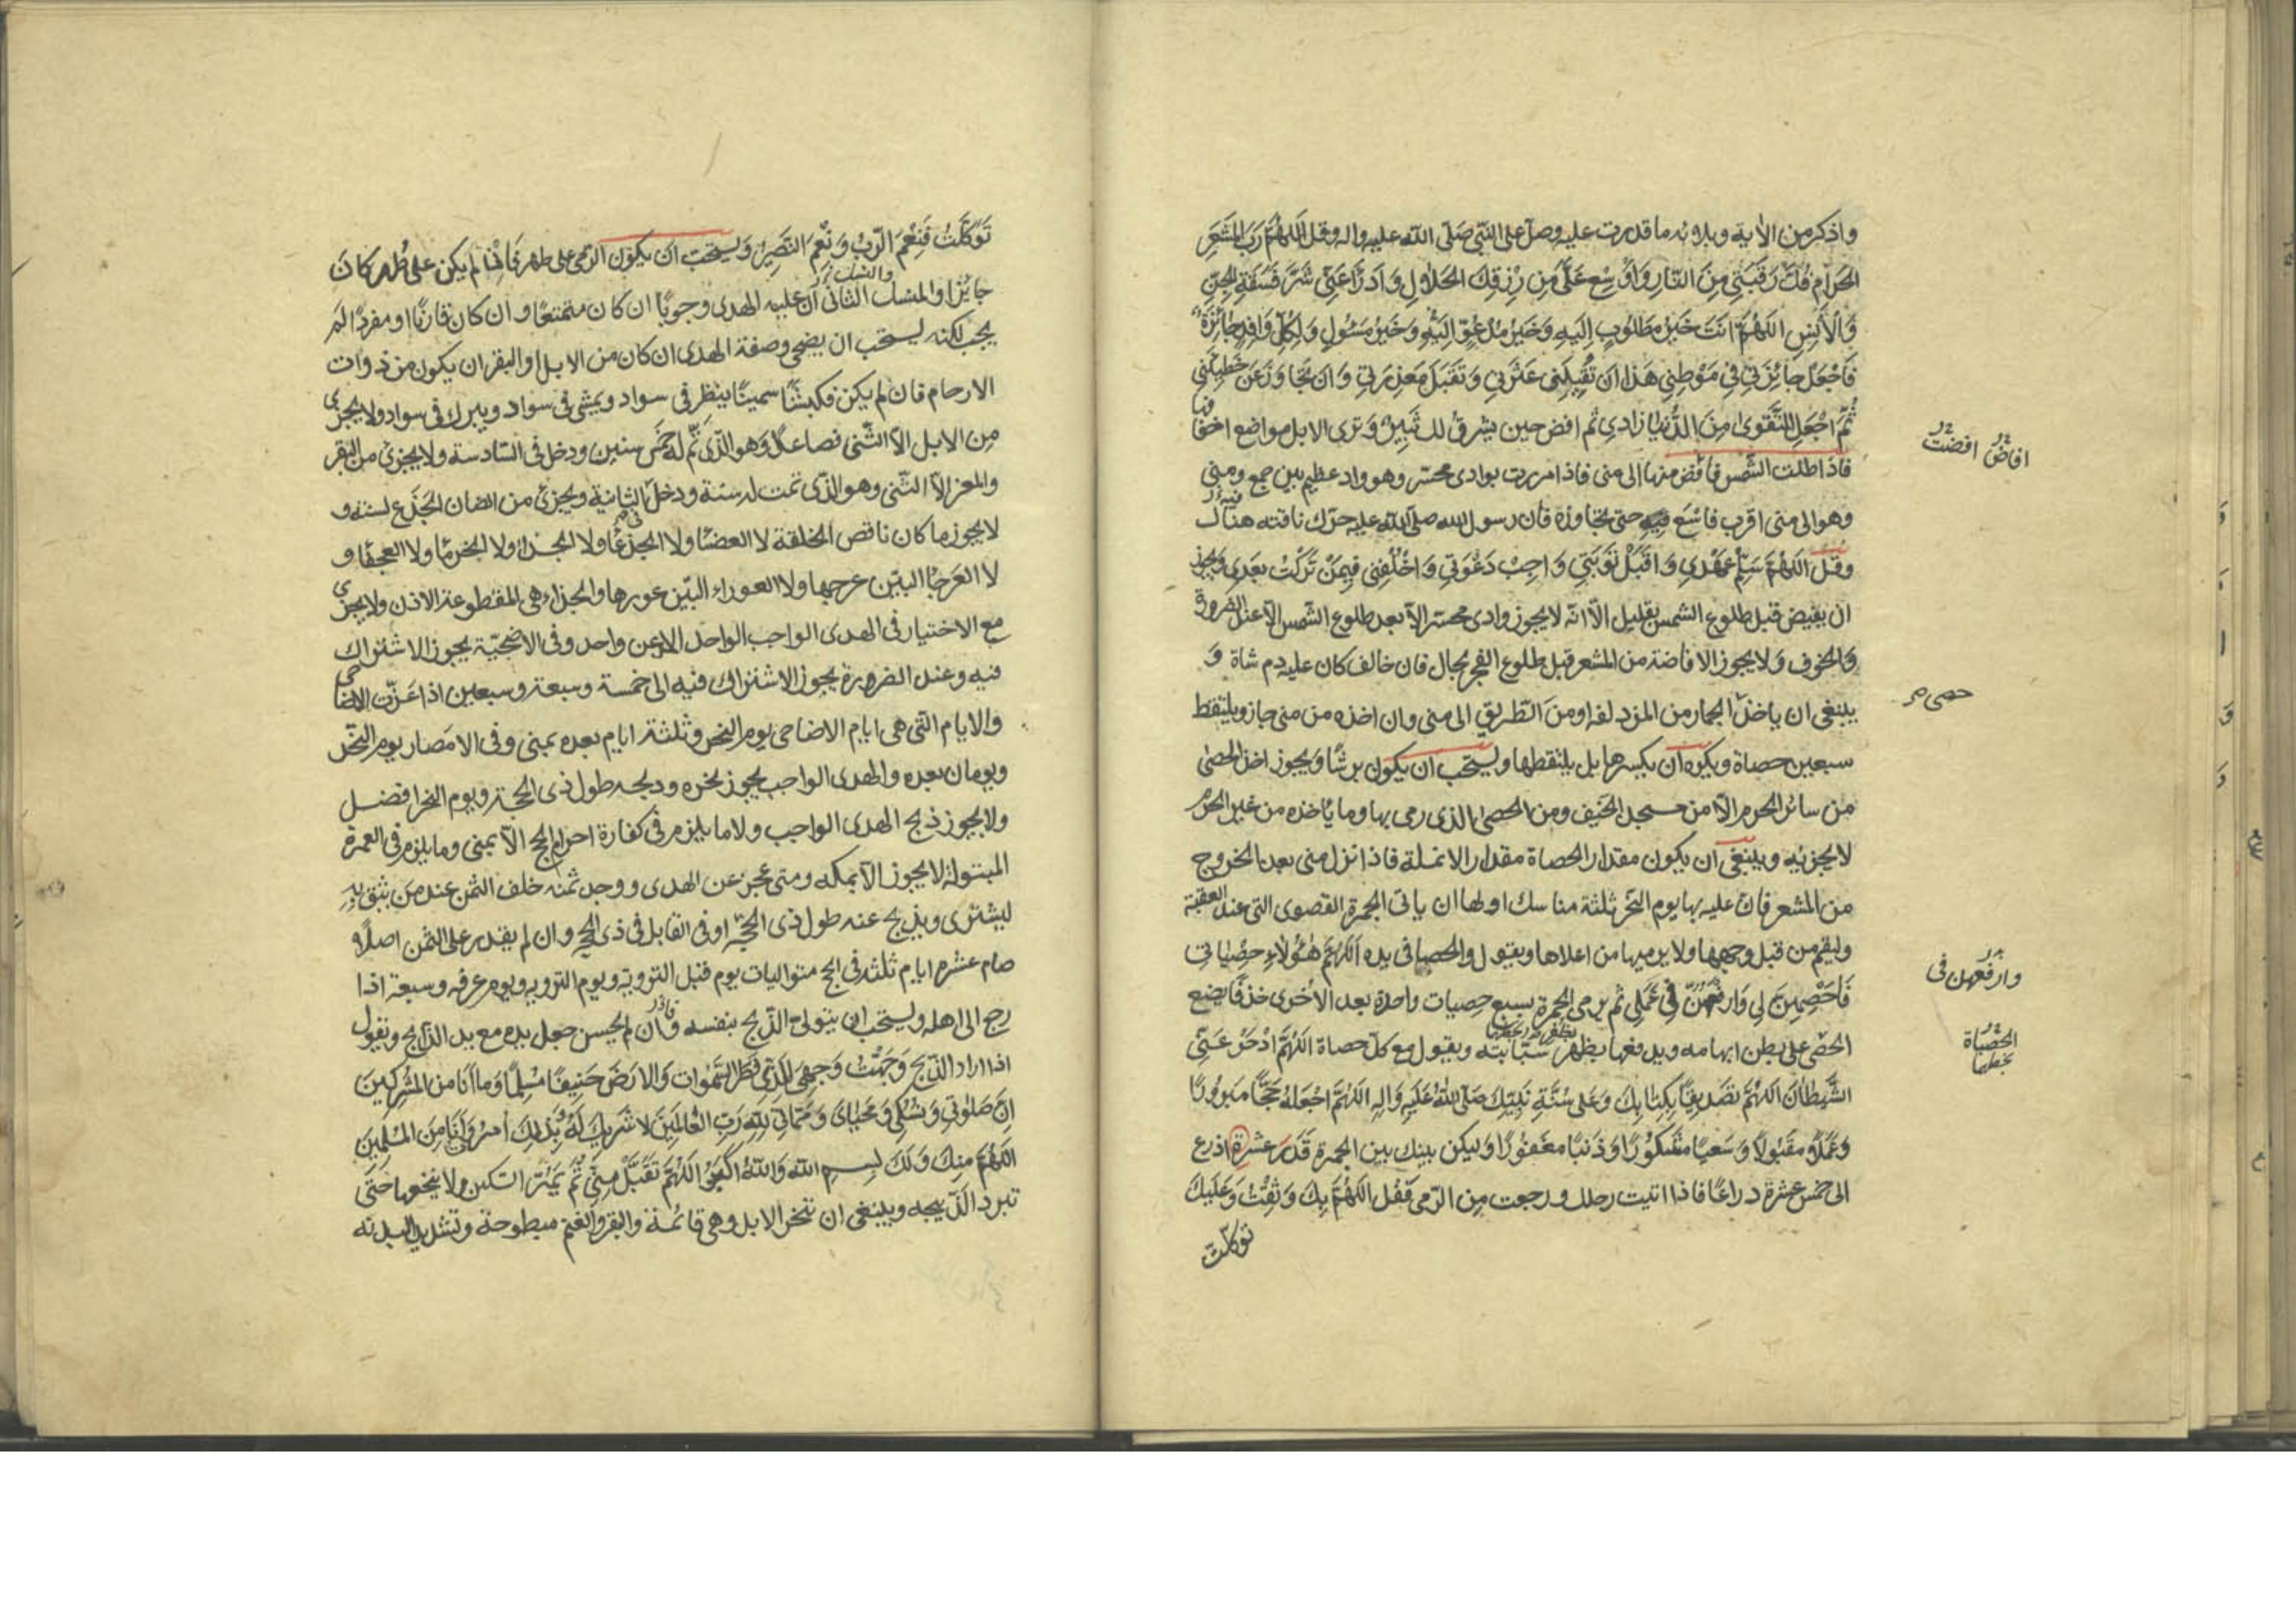 واذكر من الآية وبلائه ما قدرت عليه وصل على النبي صلى الله عليه واله وقل اللهم رب المشعر
الحرام فك رقبتي من النار واوسع علي من رزقك الحلال وادرأ عني شر فسقة الجن
والانس اللهم انت خير مطلوب اليه وخير مدعو اليه وخير مسئول ولكل وافد جائزة
فاجعل جائزتي في موطني هذا ان تقيلني عثرتي وتقبل معذرتي وان تجاوز عن خطيئتي
ثم اجعل التقوى من الدنيا زادي ثم افض حين يشرق لك ثبير وترى الابل مواضع اخفافها
فاذا طلت الشمس فافض منها الى منى فاذا مررت بوادى محسر وهو واد عظيم بين جمع ومنى
وهو الى منى اقرب فاسع فيه حتى تجاوزه فان رسول الله صلى الله عليه حرك ناقته هناك
وقل اللهم سلم عهدي واقبل توبتي واجب دعوتي واخلفني فيمن تركت بعدي ويجوز
ان يفيض قبل طلوع الشمس بقليل الا انه لا يجوز وادى محسر الا بعد طلوع الشمس الا عند الضرورة
والخوف ولا يجوز الافاضة من المشعر قبل طلوع الفجر بحال فان خالف كان عليه دم شاة و
ينبغى ان ياخذ الجمار من المزدلفه او من الطريق الى منى وان اخذه من منى جاز ويلتقط
سبعين حصاة ويكره ان يكسرها بل يلتقطها ويستحب ان يكون برشا ويجوز اخذ الحصى
من سائر الحرم الا من مسجد الخيف ومن الحصى الذى رمى بها وما ياخذه من غير الحرم
لا يجزئه وينبغى ان يكون مقدار الحصاة مقدار الانملة فاذا نزل منى بعد الخروج
من المشعر فان عليه بها يوم النحر ثلثة مناسك اولها ان ياتى الجمرة القصوى التى عند العقبة
وليقم من قبل وجهها ولا يرميها من اعلاها ويقول والحصا فى يده اللهم هؤلاء حصياتى
فاحصهن لي وارفعهن في عملي ثم يرمى الجمرة بسبع حصيات واحدة بعد الأخرى خذفا يضع
الحصى على بطن ابهامه ويدفعها بظهر سبابته ويقول مع كل حصاة اللهم ادحر عني
الشيطان اللهم تصديقا بكتابك وعلى سنة نبيك صلى الله عليه واله اللهم اجعله حجا مبرورا
وعملا مقبولا وسعيا مشكورا وذنبا مغفورا وليكن بينك بين الجمرة قدر عشرة اذرع
الى خمس عشرة ذراعا فاذا اتيت رحلك ورجعت من الرمى فقل اللهم بك وثقت وعليك
توكلت
افاض افضت
حصى م
وارفعهن فى
الحصاة
توكلت فنعم الرب ونعم النصير ويستحب ان يكون الرمى على طهر فان لم يكن على طهر كان
جائزا والمنسك الثانى ان عليه الهدى وجوبا ان كان متمتعا وان كان قارنا او مفردا لم
يجب لكنه يستحب ان يضحى وصفة الهدى ان كان من الابل او البقر ان يكون من ذوات
الارحام فان لم يكن فكبشا سمينا ينظر فى سواد ويمشى فى سواد ويبرك فى سواد ولا يجزى
من الابل الا الثنى فصاعدا وهو الذى تم له خمس سنين ودخل فى السادسة ولا يجزئ من البقر
والمعز الا الثنى وهو الذى تمت له سنة ودخل الثانية ويجزئ من الضان الجذع لسنة و
لا يجوز ما كان ناقص الخلقة لا العضبا ولا الجذعا ولا الجذاء ولا الخرما ولا العجفا و
لا العرجا البين عرجها ولا العوراء البين عورها والجذاء هى المقطوعة الاذن ولا يجزى
مع الاختيار فى الهدى الواجب الواحد الا عن واحد وفى الاضحية يجوز الاشتراك
فيه وعند الضرورة يجوز الاشتراك فيه الى خمسة وسبعة وسبعين اذا عزت الاضاحى
والايام التى هى ايام الاضاحى يوم النحر وثلثة ايام بعده بمنى وفى الامصار يوم النحر
ويومان بعده والهدى الواجب يجوز نحره وذبحه طول ذى الحجة ويوم النحر افضل
ولا يجوز ذبح الهدى الواجب ولا ما يلزم فى كفارة احرام الحج الا بمنى وما يلزم فى العمرة
المبتولة لا يجوز الا بمكه ومتى عجز عن الهدى ووجد ثمنه خلف الثمن عند من يثق به
ليشترى ويذبح عنه طول ذى الحجه او فى القابل فى ذى الحجه وان لم يقدر على الثمن اصلا و
صام عشرة ايام ثلثه فى الحج متواليات يوم قبل التروية ويوم الترويه ويوم عرفه وسبعة اذا
رجع الى اهله ويستحب ان يتولى الذبح بنفسه فان لم يحسن جعل يده مع يد الذابح وتقول
اذا اراد الذبح وجهت وجهي للذي فطر السموات والارض حنيفا مسلما وما انا من المشركين
ان صلوتي ونسكي ومحياى ومماتي لله رب العالمين لا شريك له وبذلك امرت وانا من المسلمين
اللهم منك ولك بسم الله والله اكبر اللهم تقبل مني ثم يمر السكين ولا ينخعها حتى
تبرد الذبيحه وينبغى ان تنحر الابل وهى قائمة والبقر والغنم مبطوحة وتشد يد البدنه